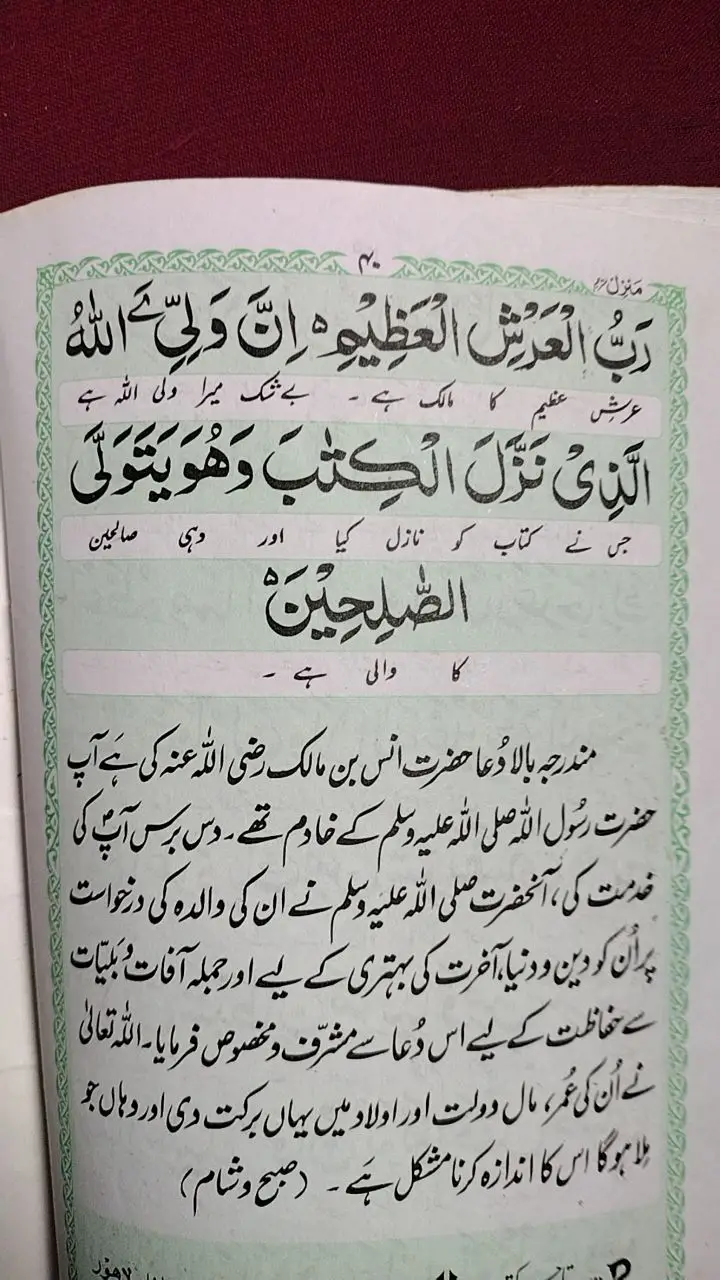 ۴۰
منزل
رَبُّ الْعَرْشِ الْعَظِيْمِ ۵ اِنَّ وَلِيِّ ےَ اللّٰهُ
عرشِ عظیم کا مالک ہے ۔ بے شک میرا ولی اللہ ہے
الَّذِىْ نَزَّلَ الْكِتٰبَ وَهُوَ يَتَوَلَّى
جس نے کتاب کو نازل کیا اور وہی صالحین
الصّٰلِحِيْنَ ۵
کا والی ہے ۔
مندرجہ بالا دُعا حضرت انس بن مالک رضی اللہ عنہ کی ہَے آپ
حضرت رسُول اللہ صلی اللہ علیہ وسلم کے خادم تھے۔ دس برس آپؐ کی
خدمت کی، آنحضرت صلی اللہ علیہ وسلم نے ان کی والدہ کی درخواست
پر اُن کو دین و دنیا، آخرت کی بہتری کے لیے اور جملہ آفات و بَلیّات
سے حفاظت کے لیے اس دُعا سے مشرّف و مخصوص فرمایا۔ اللہ تعالیٰ
نے اُن کی عُمر، مال و دولت اور اولاد میں یہاں برکت دی اور وہاں جو
مِلا ہو گا اس کا اندازہ کرنا مشکل ہَے ۔ (صبح و شام)